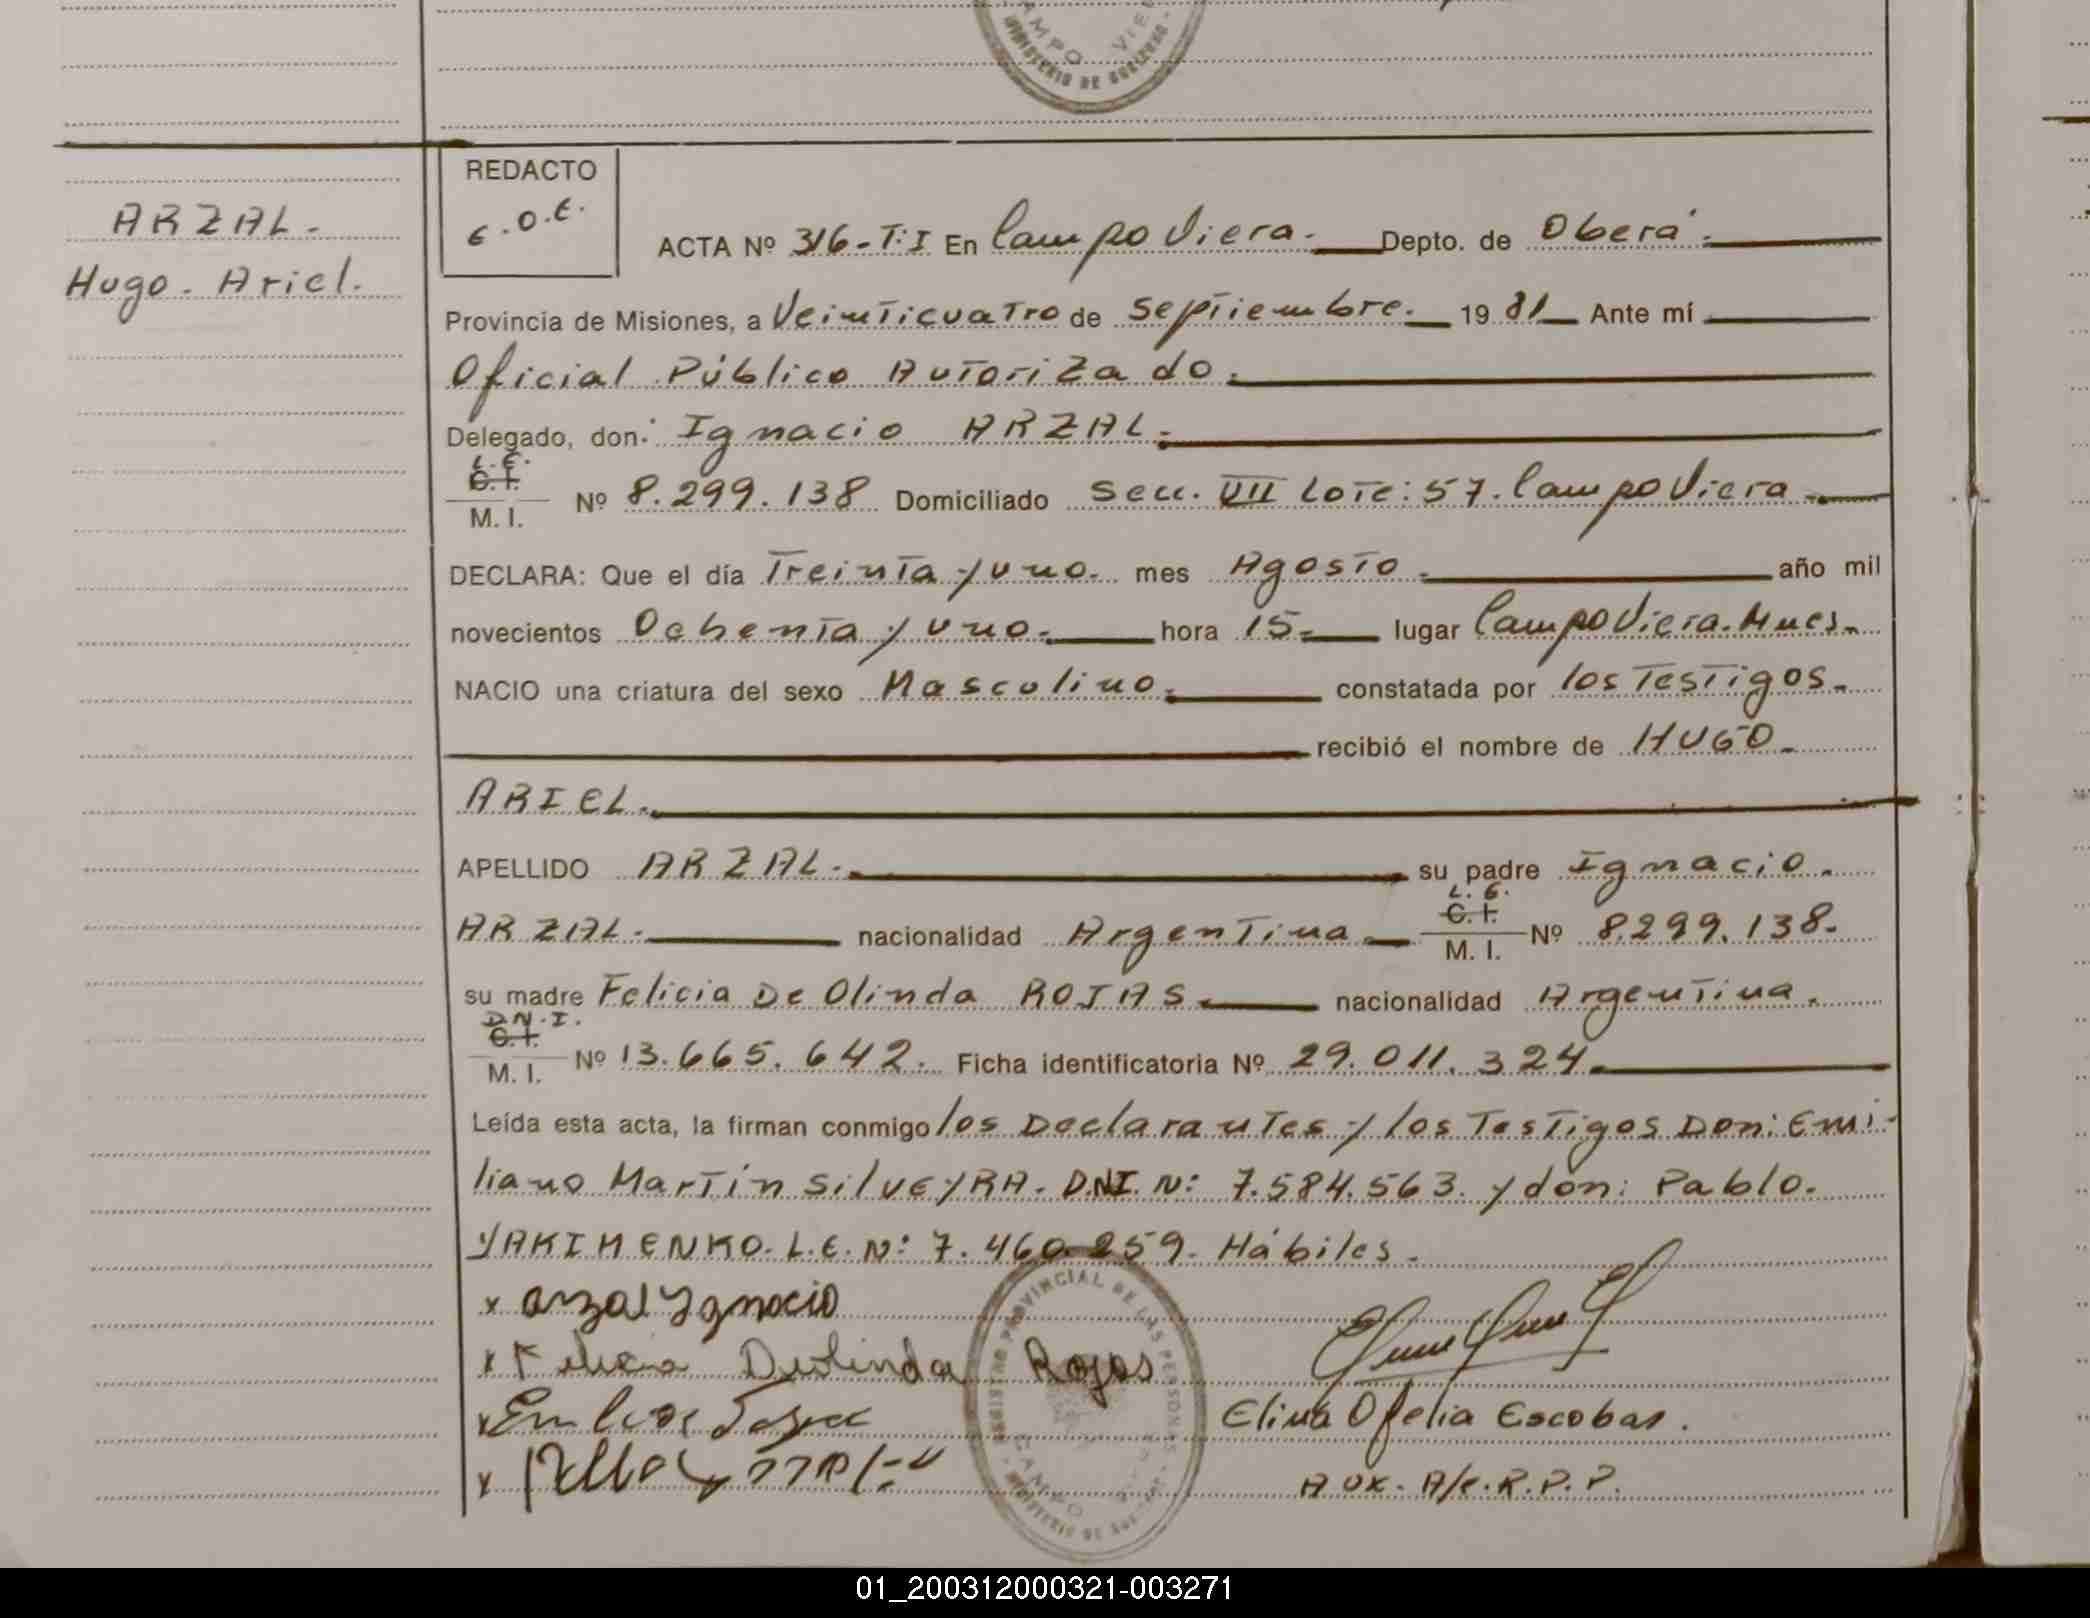 CAMPO VIE
MINISTERIO DE GOBIERNO
REDACTO
E.O.E.
ARZAL.
Hugo. Ariel.
ACTA Nº 316-T:I En Campo Viera. Depto. de Oberá.
Provincia de Misiones, a Veinticuatro de Septiembre. 19 81 Ante mí
Oficial Público Autorizado.
Delegado, don: Ignacio ARZAL.
L.E.
C.I.
M. I. Nº 8.299.138 Domiciliado Secc. VII Lote: 57. Campo Viera
DECLARA: Que el día Treinta y uno. mes Agosto. año mil
novecientos Ochenta y uno. hora 15. lugar Campo Viera. Mnes.
NACIO una criatura del sexo Masculino. constatada por los Testigos.
recibió el nombre de HUGO.
ARIEL.
APELLIDO ARZAL. su padre Ignacio.
L.E.
ARZAL. nacionalidad Argentina. C.I. M. I. Nº 8299.138.
su madre Felicia De Olinda ROJAS nacionalidad Argentina.
D.N.I.
C.I.
M. I. Nº 13.665.642. Ficha identificatoria Nº 29.011.324
Leída esta acta, la firman conmigo los Declarantes y los Testigos Don: Emi-
liano Martín SilveyRA. D.N.I. N: 7.584.563. y don: Pablo.
YAKIMENKO. L.E. N: 7.460.259. Hábiles.
x Arzal Ygnacio
x Felicia Deolinda Rojas
x
x
REGISTRO PROVINCIAL DE LAS PERSONAS
CAMPO
MINISTERIO DE
Elina Ofelia Escobar.
AUX. A/C. R.P.P.
01_200312000321-003271